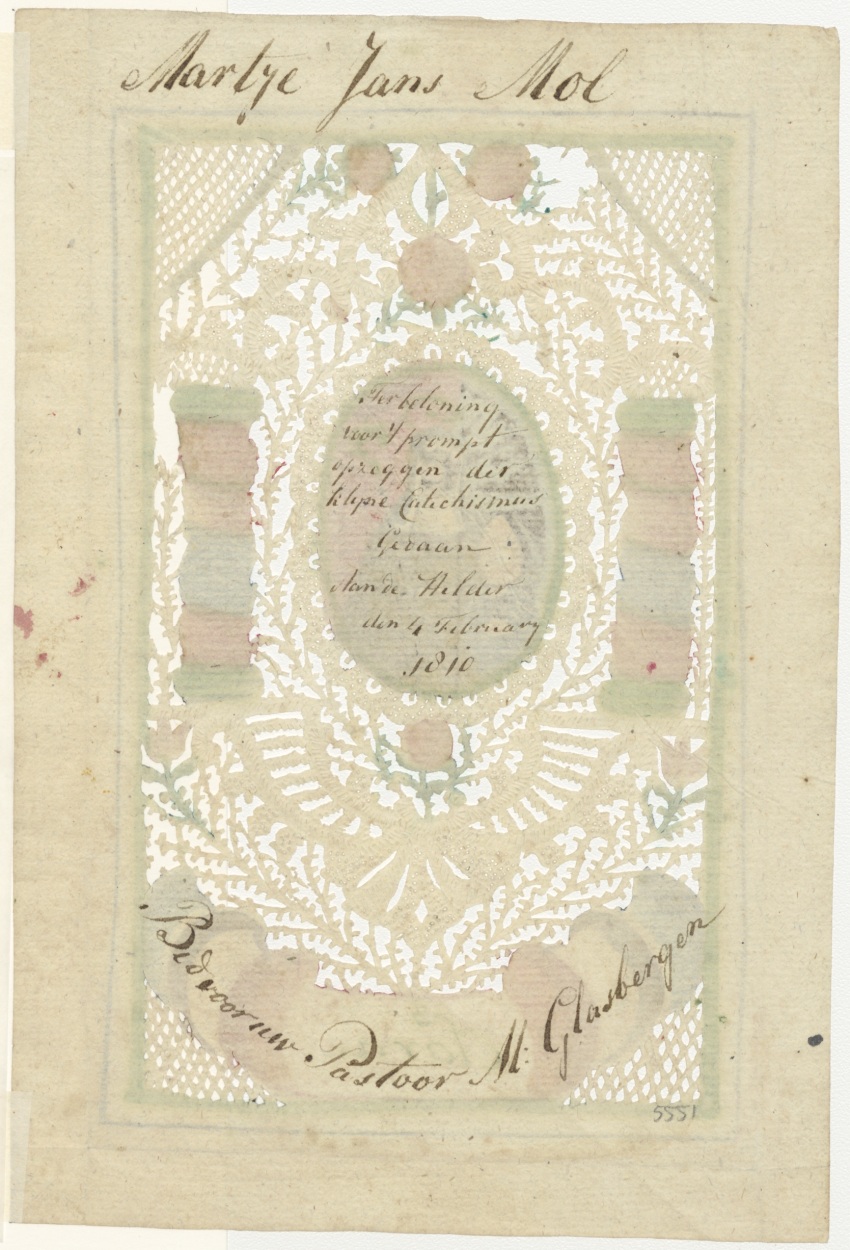 Martje Jans Mol
Ter beloning
voor 't prompt
opzeggen der
klyne Catechismus
Gedaan
Aan de Helder
den 4 February
1810
Bid voor uw Pastoor M: Glasbergen
5551